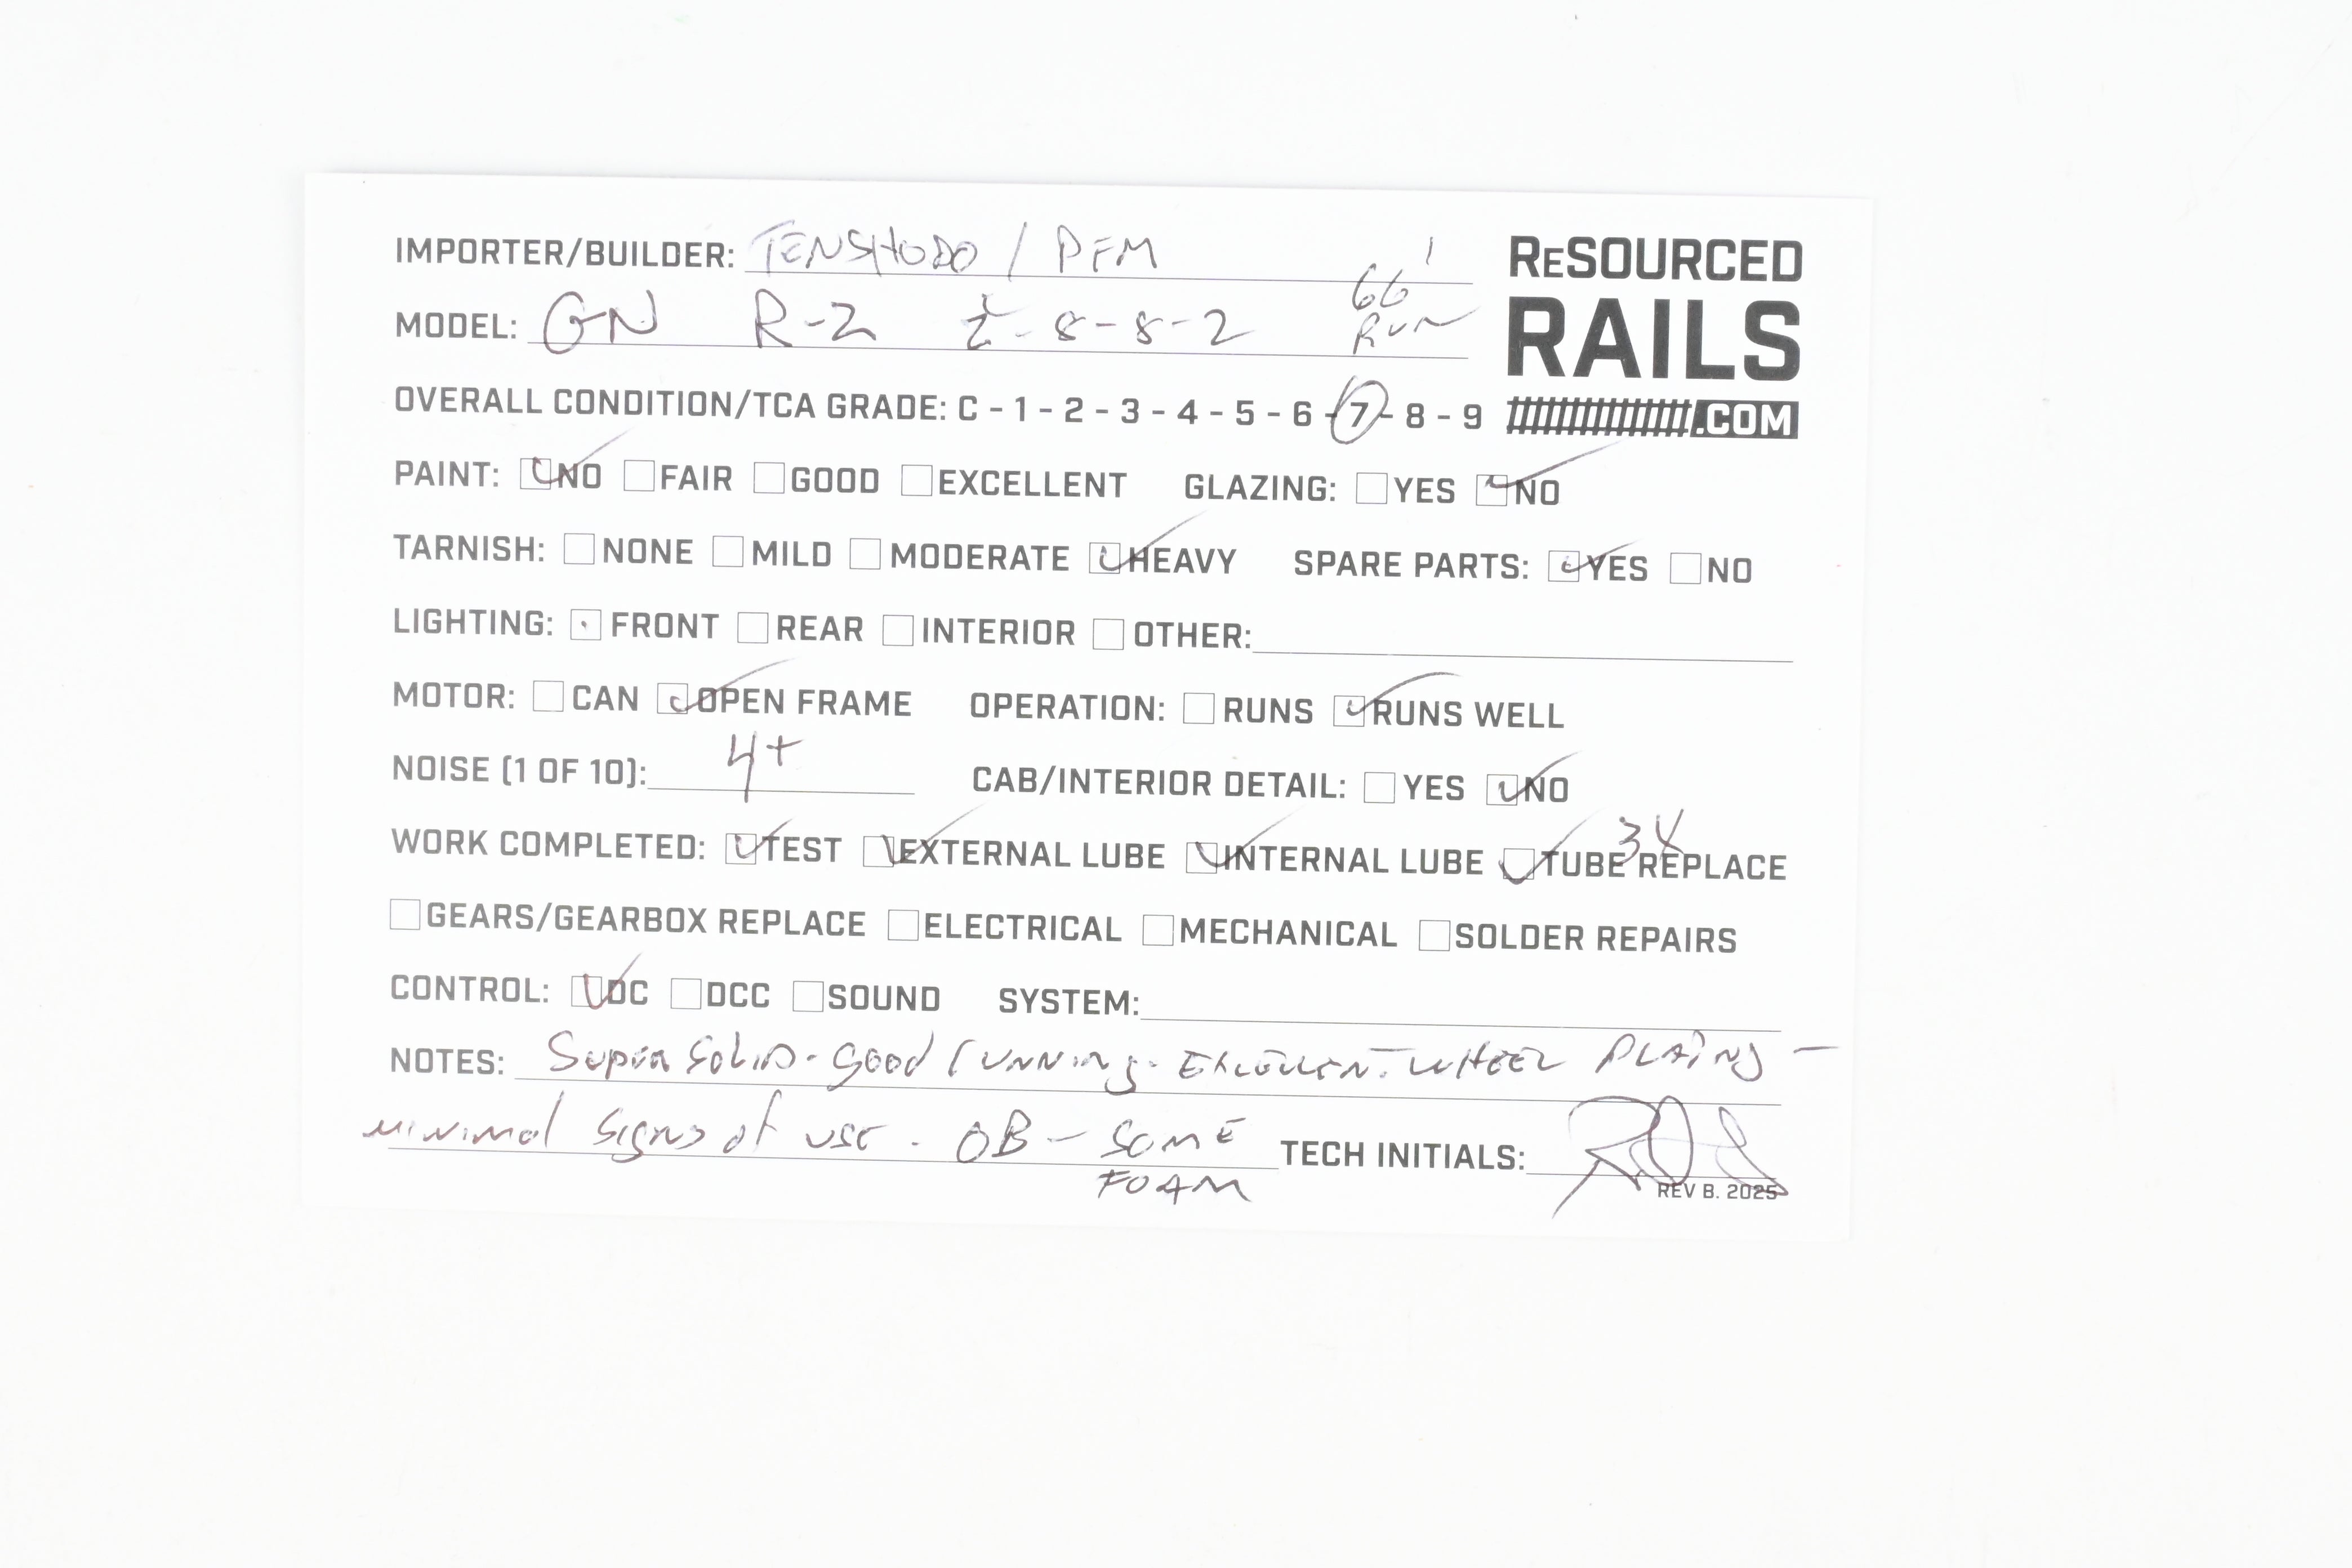 IMPORTER/BUILDER: TENSHODO / PFM
RESOURCED
RAILS
.COM
MODEL: GN R-2 2-8-8-2 66' RUN
OVERALL CONDITION/TCA GRADE: C - 1 - 2 - 3 - 4 - 5 - 6 - 7 - 8 - 9
PAINT: NO FAIR GOOD EXCELLENT GLAZING: YES NO
TARNISH: NONE MILD MODERATE HEAVY SPARE PARTS: YES NO
LIGHTING: FRONT REAR INTERIOR OTHER:
MOTOR: CAN OPEN FRAME OPERATION: RUNS RUNS WELL
NOISE (1 OF 10): 4+ CAB/INTERIOR DETAIL: YES NO
WORK COMPLETED: TEST EXTERNAL LUBE INTERNAL LUBE TUBE REPLACE 3X
GEARS/GEARBOX REPLACE ELECTRICAL MECHANICAL SOLDER REPAIRS
CONTROL: DC DCC SOUND SYSTEM:
NOTES: Super Solid - Good running - EXCELLENT WHEEL PLATING -
minimal signs of use. OB - SOME
FOAM
TECH INITIALS:
REV B. 2025